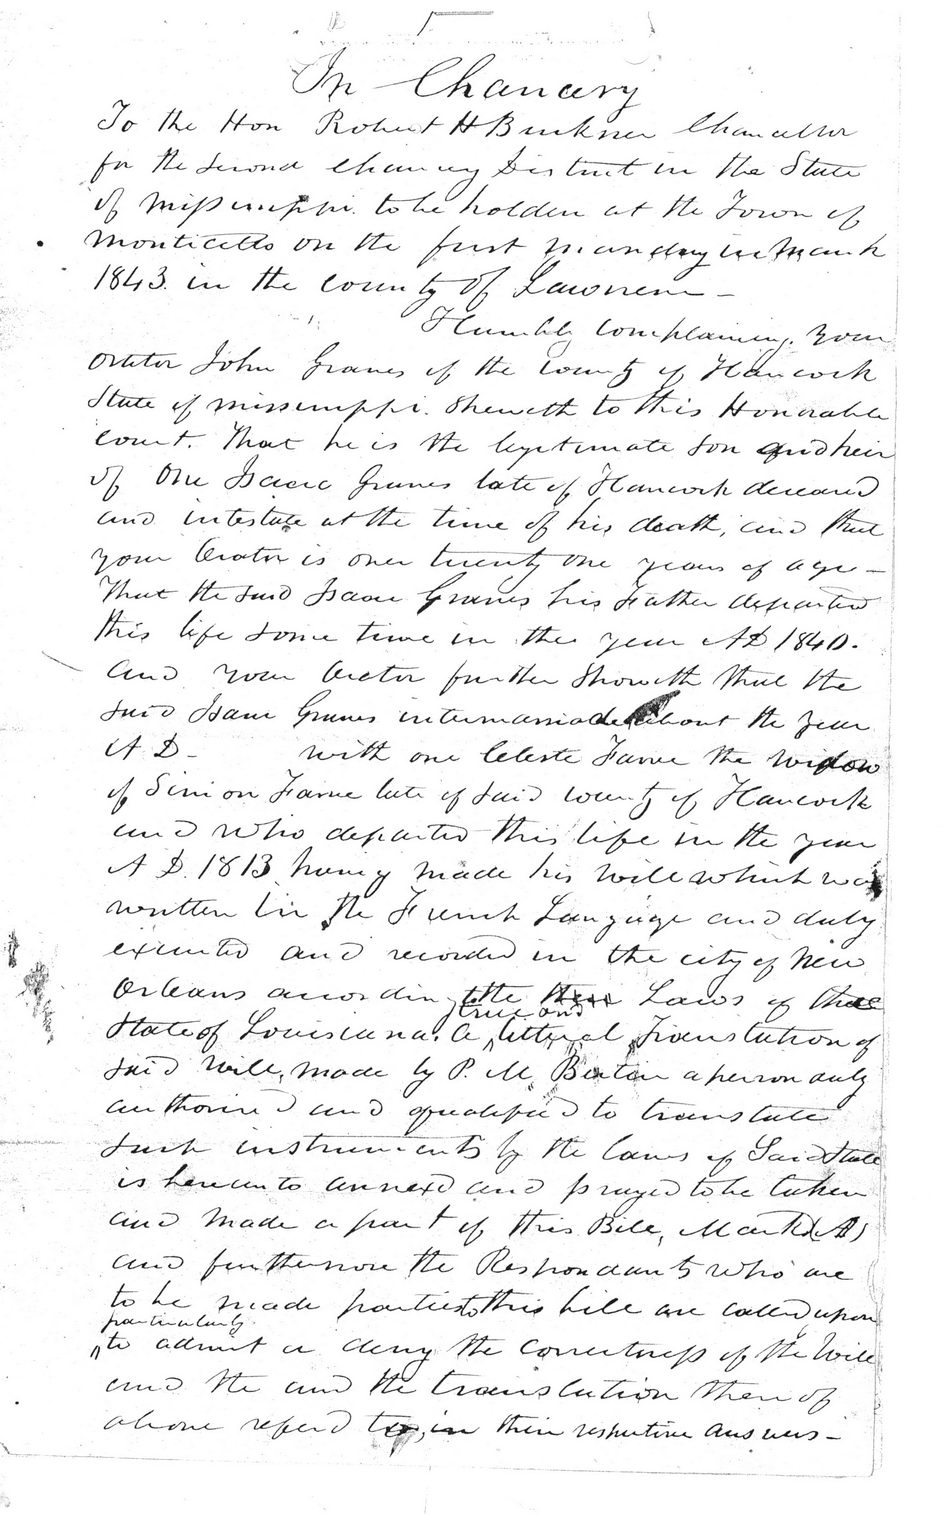 In Chancery
To the Hon Robert H Buckner Chancellor
for the Second Chancery District in the State
of Mississippi. to be holden at the Town of
Monticello on the first Monday in March
1843. in the County of Lawrence –
Humbly Complaining. Your
Orator John Graves of the County of Hancock
State of Mississippi. Sheweth to this Honorable
Court. That he is the legitimate Son and heir
of One Isaac Graves late of Hancock deceased
and intestate at the time of his death, and that
your Orator is over twenty one years of age –
That the said Isaac Graves his Father departed
this life some time in the year AD 1840.
and your Orator further Showeth that the
said Isaac Graves intermarried about the year
A D - with one Celeste Farve the Widow
of Simon Farve late of said County of Hancock
and who departed this life in the year
A D. 1813 having made his Will which was
written in the French Language and duly
executed and recorded in the city of New
Orleans according to the Laws of the
State of Louisiana. A litteral Translation of
true and
said Will, made by P. M. a person duly
authorised and qualified to translate
such instruments by the laws of Said State
is hereunto annexed and prayed to be taken
and made a part of this Bill, Marked (A)
and furthermore the Respondants who are
to be made parties to this bill are called upon
particularly
to admit or deny the correctness of the Will
and the and the translation there of
above referd to, in their respective answers –